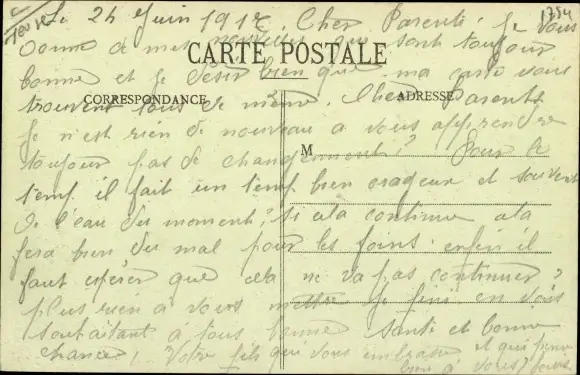 1754
Le 24 Juin 1917. Cher Parents. Je vous
donne de mes nouvelles qui sont toujour
CARTE POSTALE
bonne et je désir bien que ma carte vous
trouvent tous de même. Chers Parents
CORRESPONDANCE
ADRESSE
Je n'est rien de nouveau a vous apprendre
M
toujour pas de changemment? Pour le
temp il fait un temp bien orageux et souvent
de l'eau du moment? Si ala continue ala
fera bien du mal pour les foins. enfin il
faut espérer que cela ne va pas continuer?
plus rien a vous mettre je fini en vous
souhaitant à tous bonne santé et bonne
chance, Votre fils qui vous embrasse et qui pense
bien à vous?